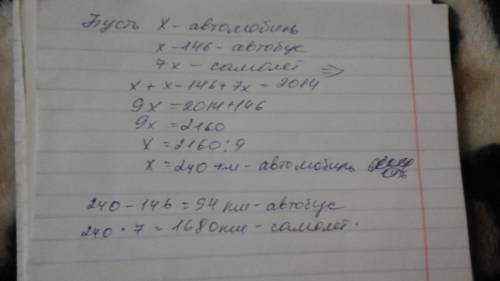 Пусть x - автомобиль
x - 146 - автобус
7x - самолет ⇒
x + x - 146 + 7x = 2014
9x = 2014 + 146
9x = 2160
x = 2160 : 9
x = 240 км - автомобиль
240 - 146 = 94 км - автобус
240 · 7 = 1680 км - самолет.